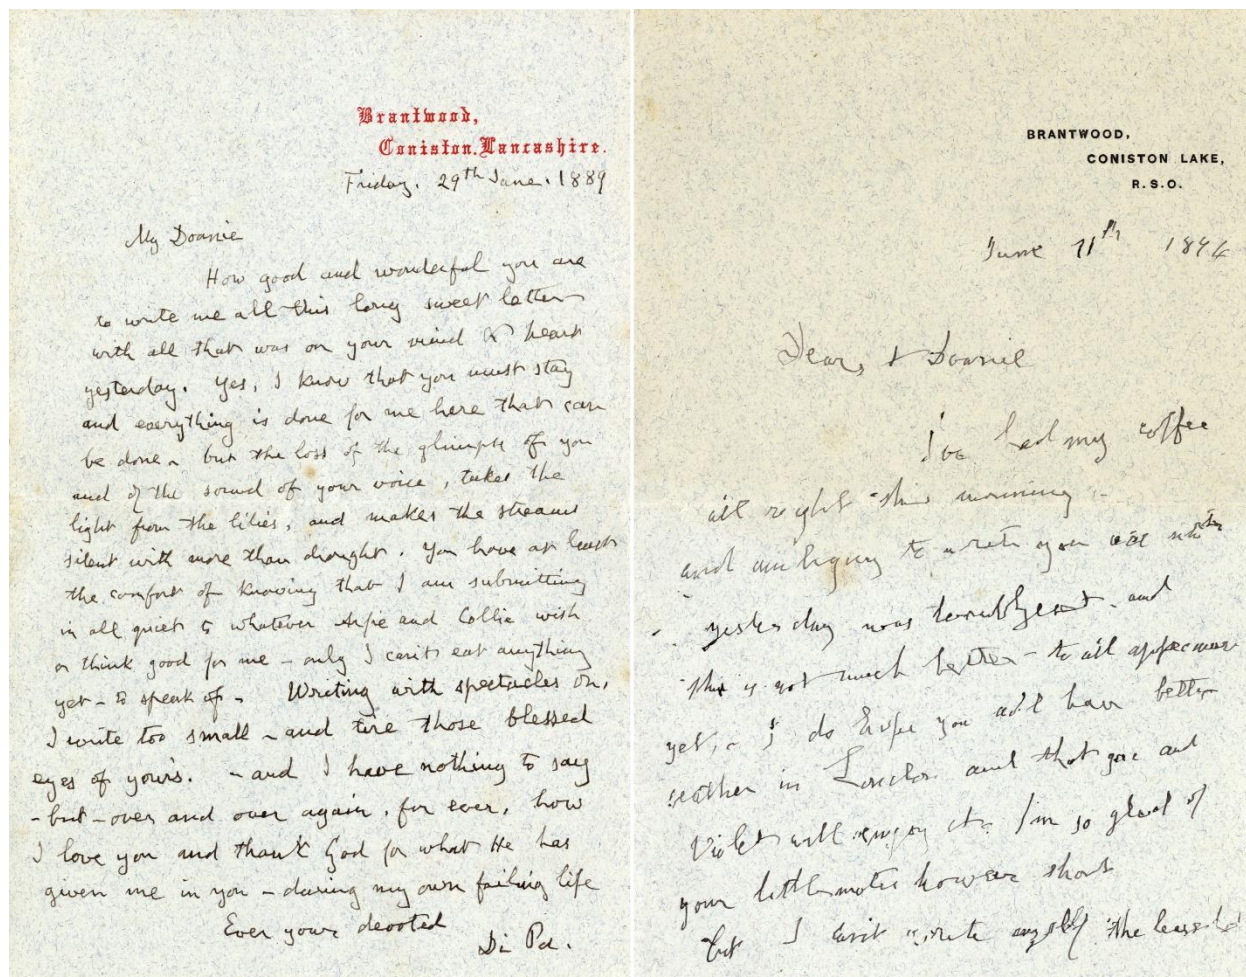 Brantwood,
Coniston, Lancashire.
Friday. 29th June. 1889
My Doanie
How good and wonderful you are
to write me all this long sweet letter
with all that was on your mind & heart
yesterday. Yes, I know that you must stay
and everything is done for me here that can
be done - but the loss of the glimpse of you
and of the sound of your voice, takes the
light from the lilies, and makes the streams
silent with more than drought. You have at least
the comfort of knowing that I am submitting
in all quiet to whatever and Collie wish
or think good for me - only I can't eat anything
yet - to speak of - Writing with spectacles on,
I write too small - and tire those blessed
eyes of yours. - and I have nothing to say
- but - over and over again, for ever, how
I love you and thank God for what He has
given me in you - during my own failing life
Ever your devoted
Di Pa.
BRANTWOOD,
CONISTON LAKE,
R.S.O.
June 11th
Doanie
I've had my coffee
all right this morning -
and to write you
yesterday was and
this is not much better - to all appearance
yet, - I do hope you will have better
weather in London and that you and
Violet will enjoy it. I'm so glad of
your little notes however short
but I can't write myself the least